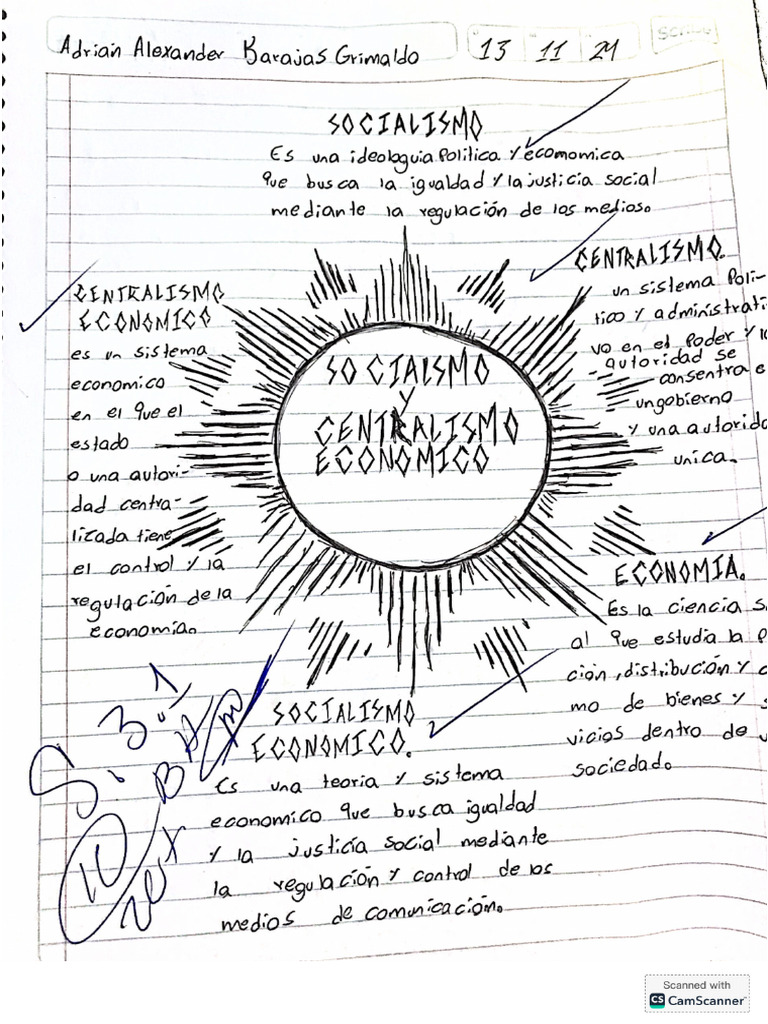 Adrian Alexander Barajas Grimaldo
13 11 24
SOCIALISMO
Es una ideologuia Politica y ecomomica
que busca la igualdad y la justicia social
mediante la regulación de los medios.
CENTRALISMO.
un sistema Polí-
tico y administrati
vo en el Poder y l
autoridad se
consentra e
ungobierno
y una autorida
unica.
CENTRALISMO
ECONOMICO
es un sistema
economico
en el que el
estado
o una autori-
dad centra-
lizada tiene
el control y la
regulación de la
economía.
SOCIALSMO
Y
CENTRALISMO
ECONOMICO
ECONOMIA.
Es la ciencia s
al que estudia la P
ción, distribución y c
mo de bienes y s
vicios dentro de
sociedad.
SOCIALISMO
ECONOMICO.
Es una teoria y sistema
economico que busca igualdad
y la justicía social mediante
la regulación y control de los
medios de comunicación.
10
Scanned with
CS CamScanner